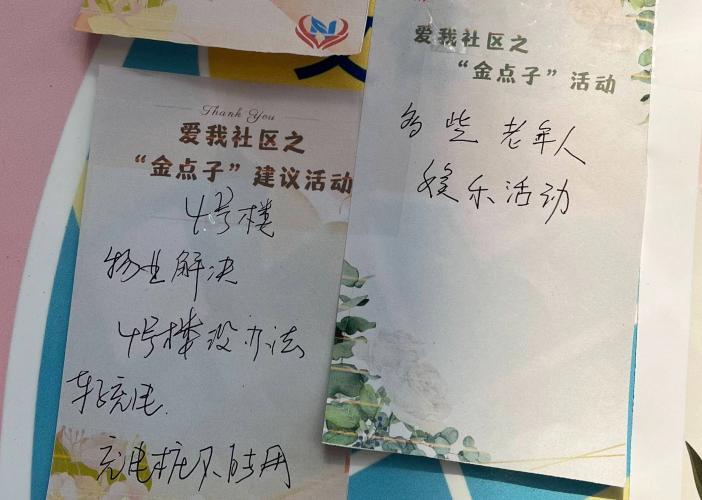 Thank You
爱我社区之
“金点子”建议活动
4号楼
物业解决
4号楼没办法
车充电
充电桩不能用
爱我社区之
“金点子”活动
多些 老年人
娱乐活动